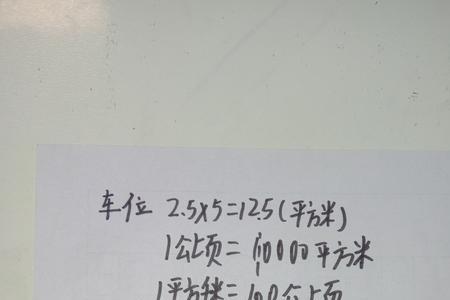 车位 2.5×5=12.5(平方米)
1公顷= 10000平方米
1平方千米=100公顷